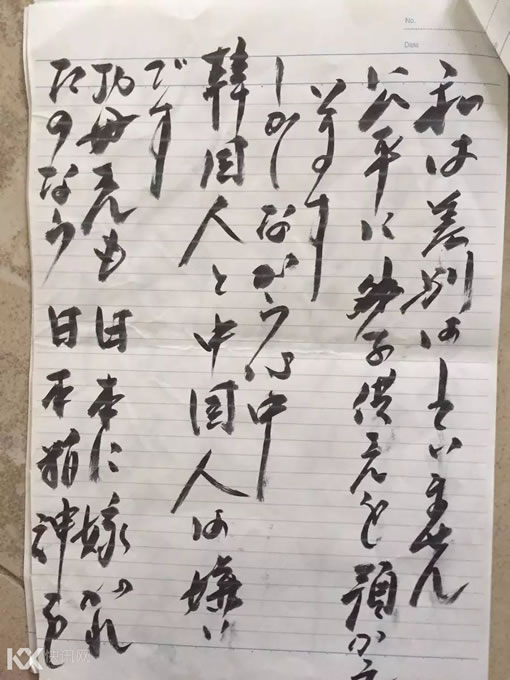 No.
Date
私は差別はしていません
公平に子供さんを預か
います
しかしながら心中
韓国人と中国人は嫌い
です
お母さんも日本に嫁がれ
たのなら日本精神を
KX 快讯网